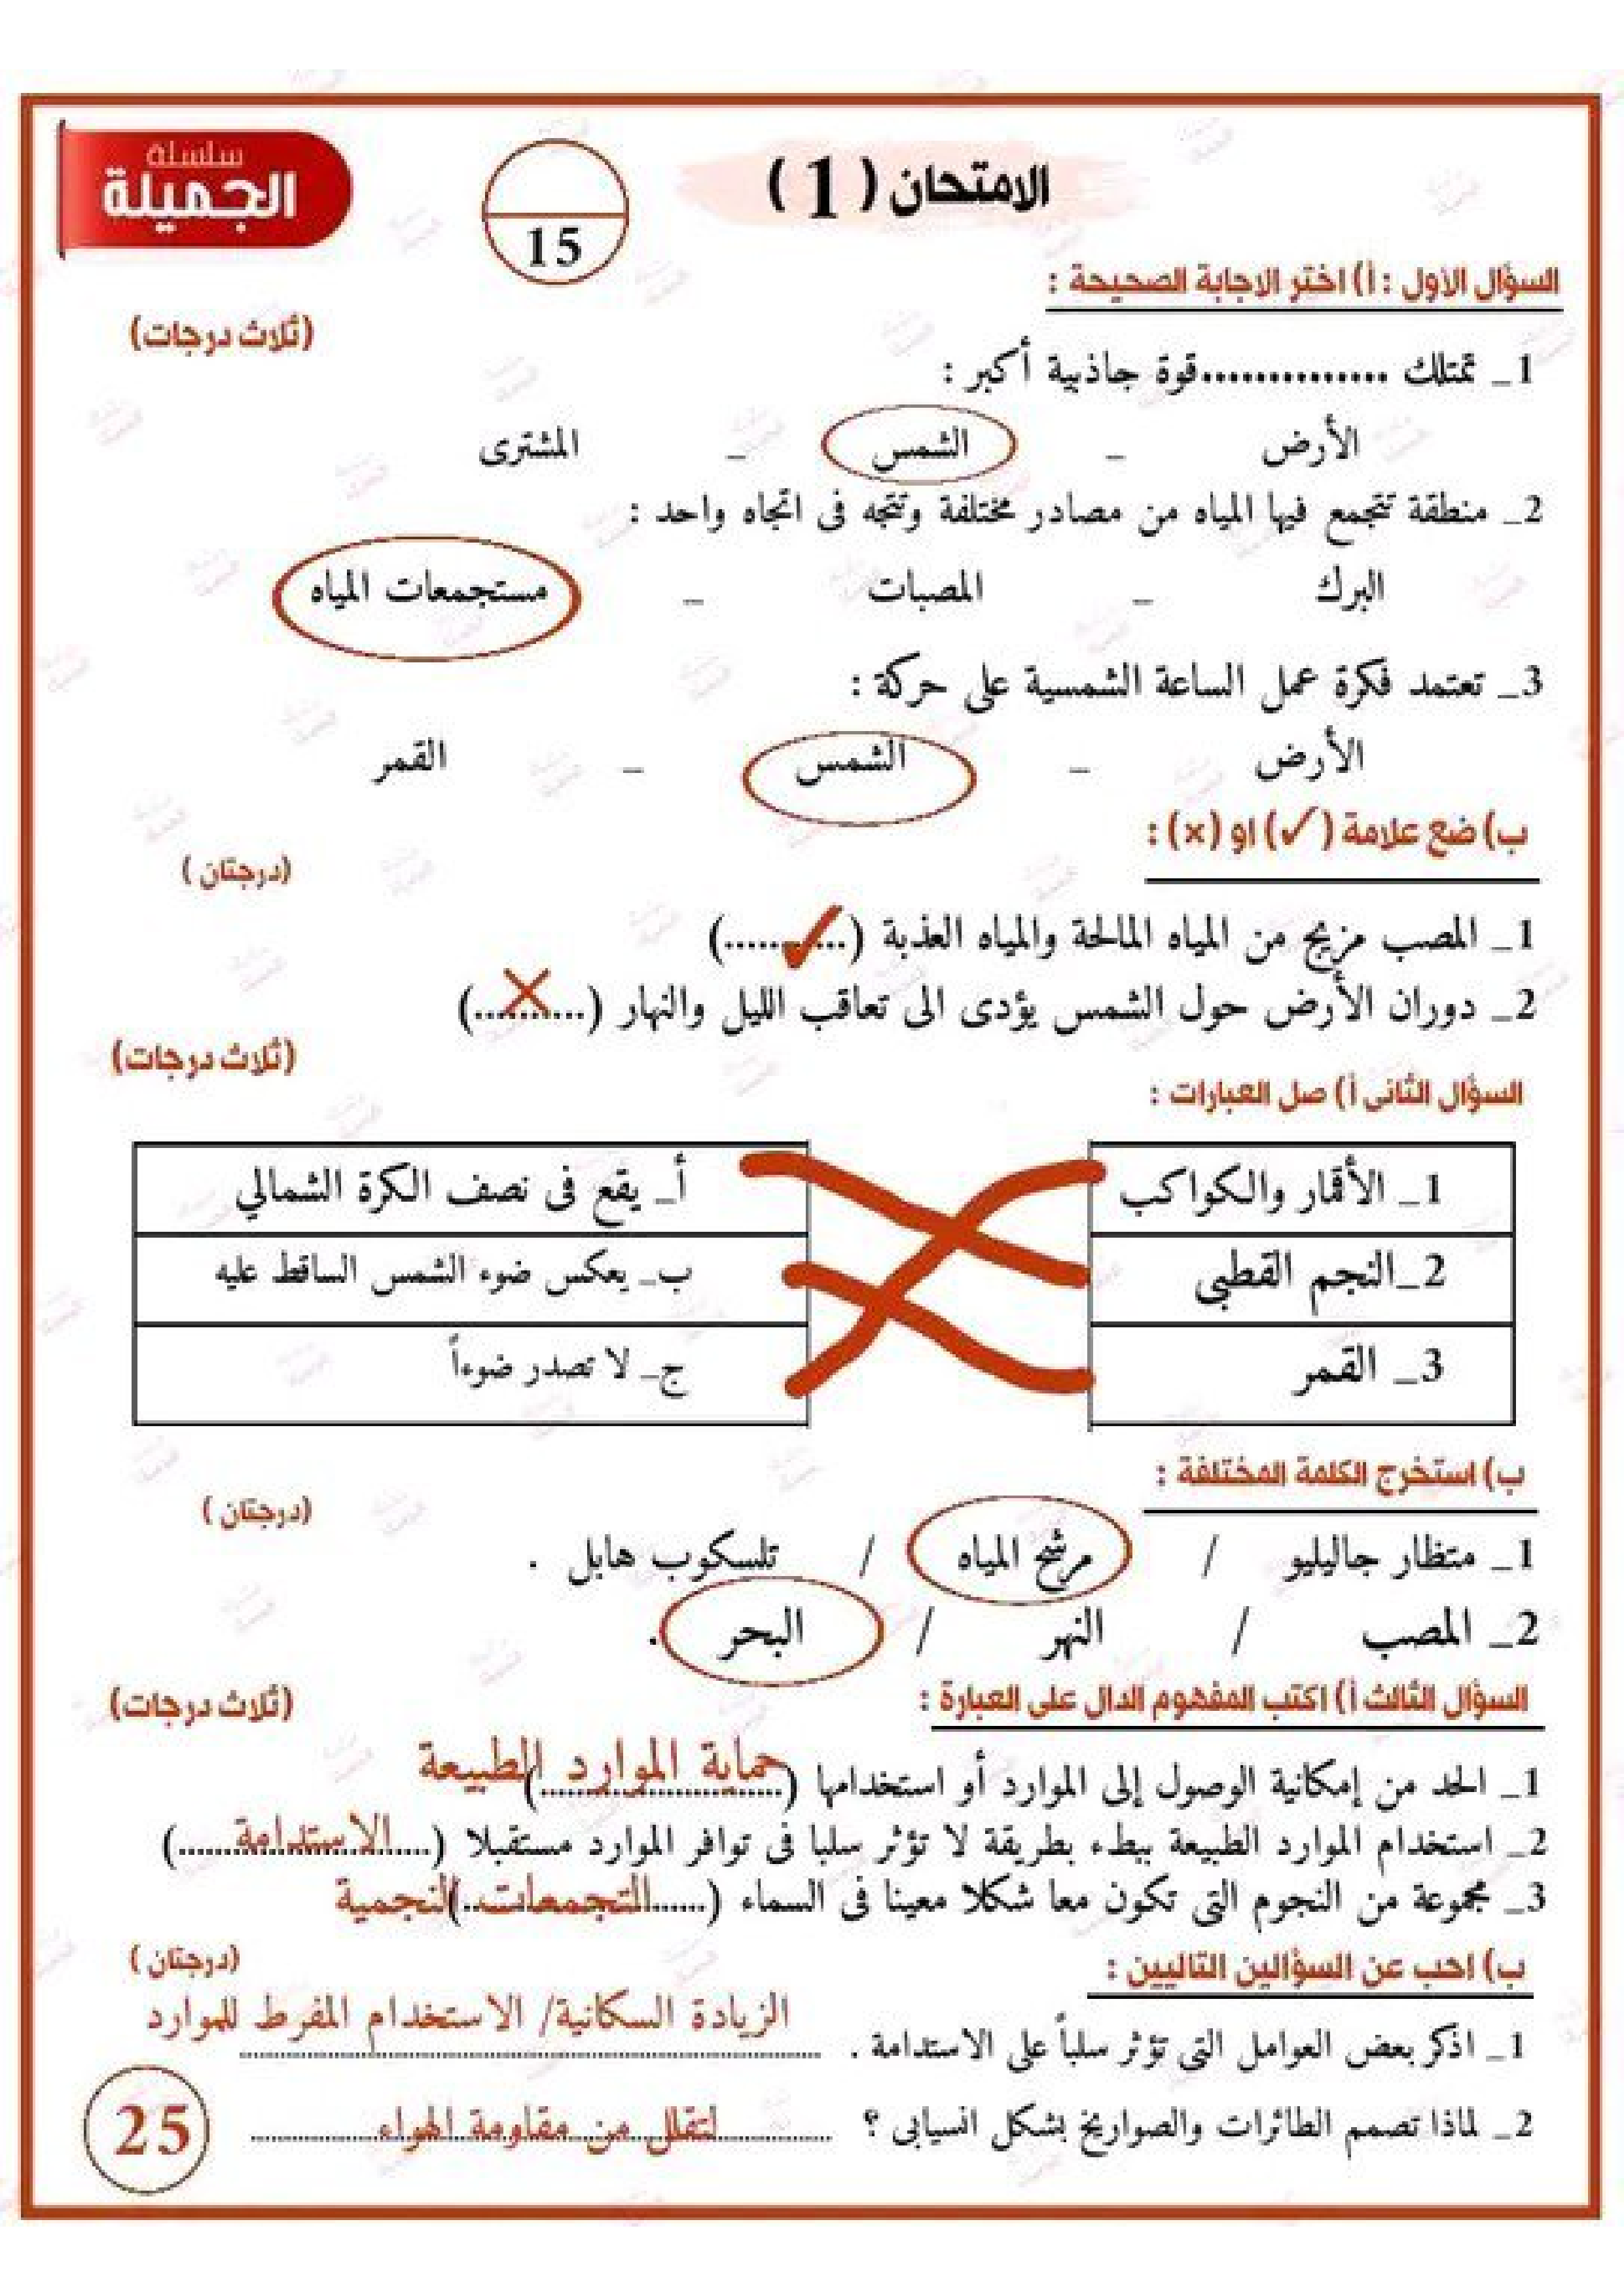 سلسلة
الجميلة
الامتحان ( 1 )
15
السؤال الاول : أ) اختر الاجابة الصحيحة :
(ثلاث درجات)
1_ تمتلك ..............قوة جاذبية أكبر :
الأرض _ الشمس _ المشترى
2_ منطقة تتجمع فيها المياه من مصادر مختلفة وتتجه فى اتجاه واحد :
البرك _ المصبات _ مستجمعات المياه
3_ تعتمد فكرة عمل الساعة الشمسية على حركة :
الأرض _ الشمس _ القمر
ب) ضع علامة (✓) او (×) :
(درجتان )
1_ المصب مزيج من المياه المالحة والمياه العذبة (.....✓.....)
2_ دوران الأرض حول الشمس يؤدى الى تعاقب الليل والنهار (....×....)
(ثلاث درجات)
السؤال الثانى أ) صل العبارات :
1_ الأقمار والكواكب أ_ يقع فى نصف الكرة الشمالي
2_النجم القطبى ب_ يعكس ضوء الشمس الساقط عليه
3_ القمر ج_ لا تصدر ضوءاً
ب) استخرج الكلمة المختلفة :
(درجتان )
1_ متظار جاليليو / مرشح المياه / تلسكوب هابل .
2_ المصب / النهر / البحر .
السؤال الثالث أ) اكتب المفهوم الدال على العبارة :
(ثلاث درجات)
1_ الحد من إمكانية الوصول إلى الموارد أو استخدامها (حماية الموارد الطبيعة)
2_ استخدام الموارد الطبيعة ببطء بطريقة لا تؤثر سلبا فى توافر الموارد مستقبلا (....الاستدامة....)
3_ مجموعة من النجوم التى تكون معا شكلا معينا فى السماء (.....التجمعات النجمية)
ب) احب عن السؤالين التاليين :
(درجتان )
1_ اذكر بعض العوامل التى تؤثر سلباً على الاستدامة . الزيادة السكانية/ الاستخدام المفرط للموارد
2_ لماذا تصمم الطائرات والصواريخ بشكل انسيابى ؟ لتقلل من مقاومة الهواء
25